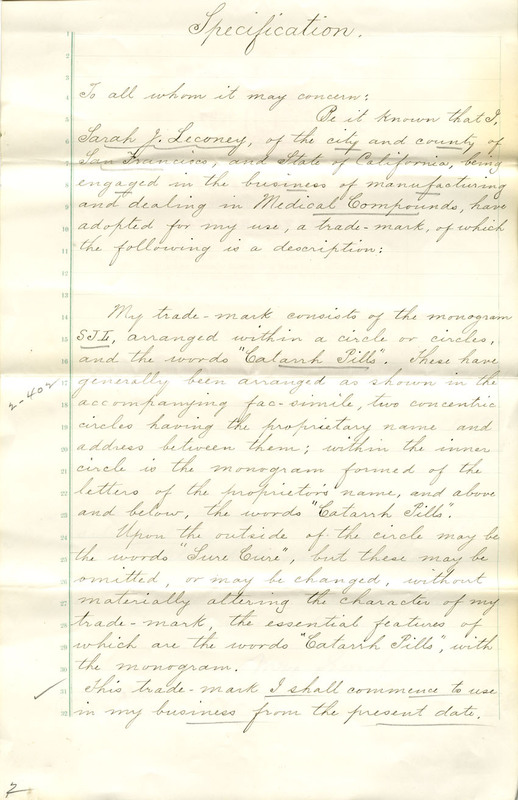 Specification.
To all whom it may concern:
Be it known that I,
Sarah J. Leconey, of the city and county of
San Francisco, and State of California, being
engaged in the business of manufacturing
and dealing in Medical Compounds, have
adopted for my use, a trade-mark, of which
the following is a description:
My trade-mark consists of the monogram
SJL, arranged within a circle or circles,
and the words "Catarrh Pills". These have
generally been arranged as shown in the
2-402
accompanying fac-simile, two concentric
circles having the proprietary name and
address between them; within the inner
circle is the monogram formed of the
letters of the proprietor's name, and above
and below, the words "Catarrh Pills".
Upon the outside of the circle may be
the words "Sure Cure", but these may be
omitted, or may be changed, without
materially altering the character of my
trade-mark, the essential features of
which are the words "Catarrh Pills", with
the monogram.
This trade-mark I shall commence to use
in my business from the present date.
2